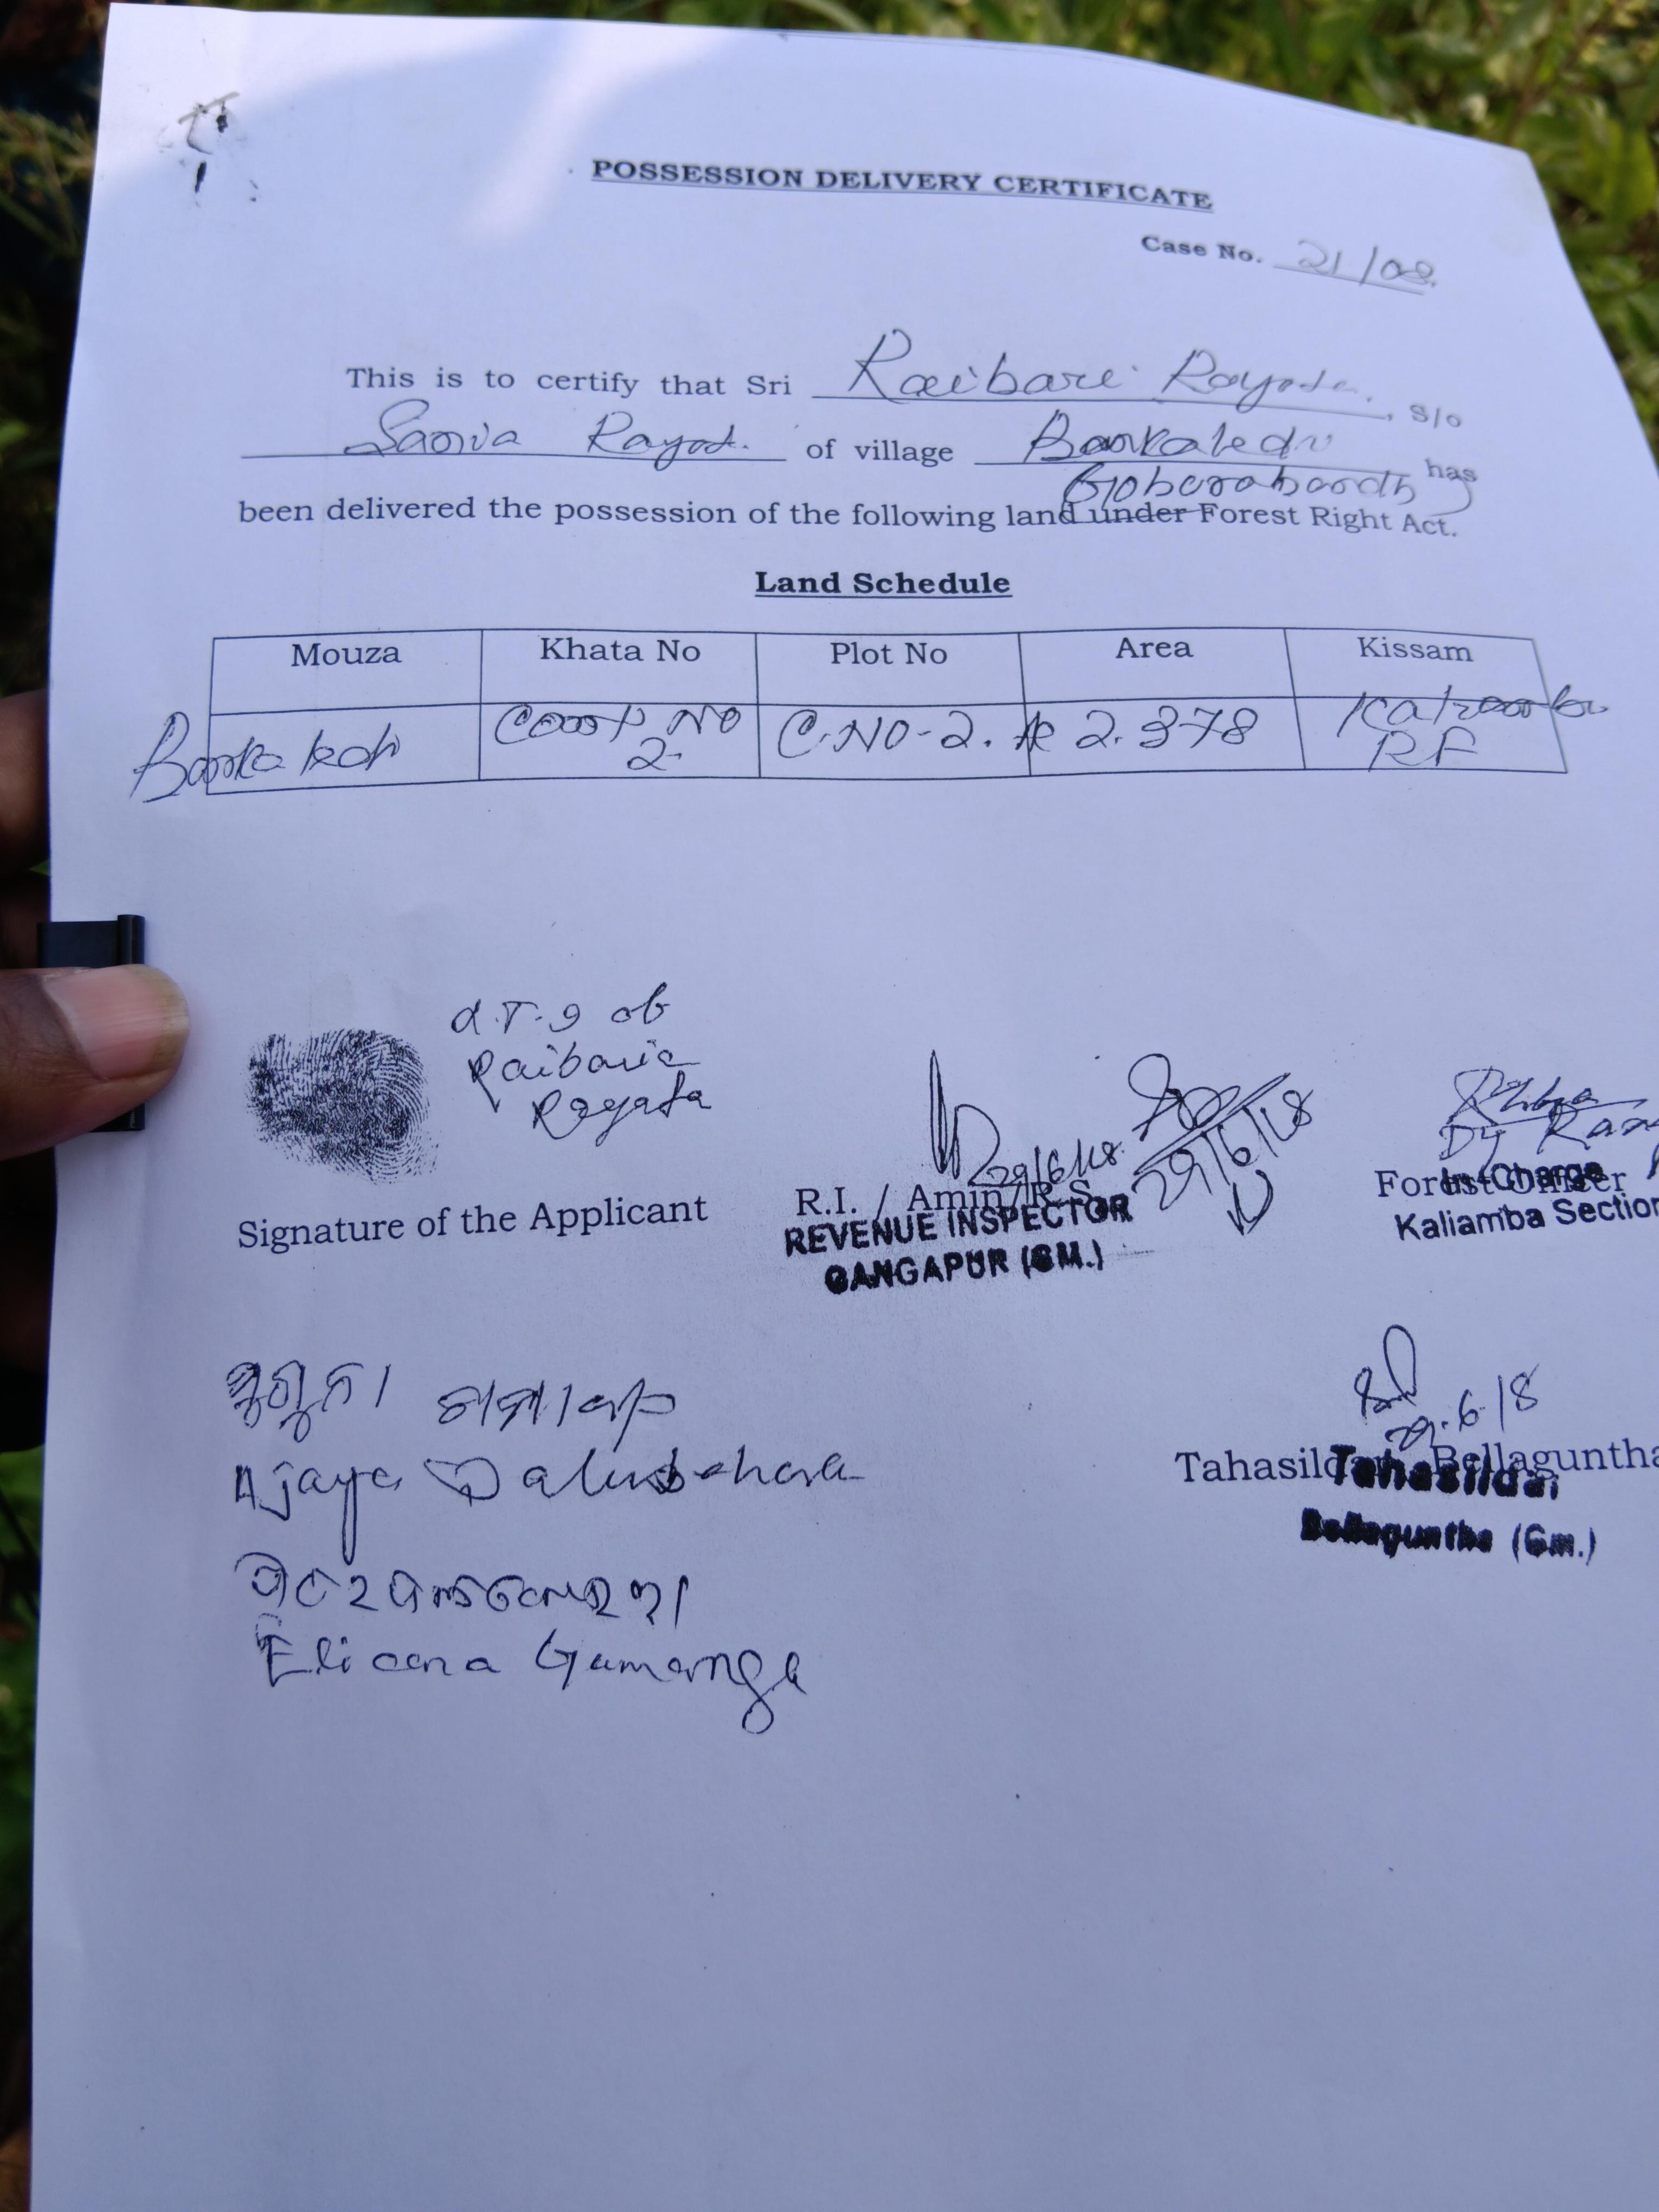 POSSESSION DELIVERY CERTIFICATE
Case No. 21/08.
This is to certify that Sri Raibari Rayata, S/o
Sania Rayat. of village
has
been delivered the possession of the following land under Forest Right Act.
Land Schedule
Mouza Khata No Plot No Area Kissam
Compt NO 2. C.NO-2. Ac 2.378 RF
L.T.I of
Raibaria
Rayata
29/6/18. 29/6/18
Dy Ran
Signature of the Applicant R.I. / Amin/R.S. Forest Officer
In-Charge
REVENUE INSPECTOR Kaliamba Section
GANGAPUR (GM.)
Ajaya Dalabehera
29.6.18
Tahasildar, Bellaguntha
Tahasildar
Bellaguntha (Gm.)
Eliana Gamanga